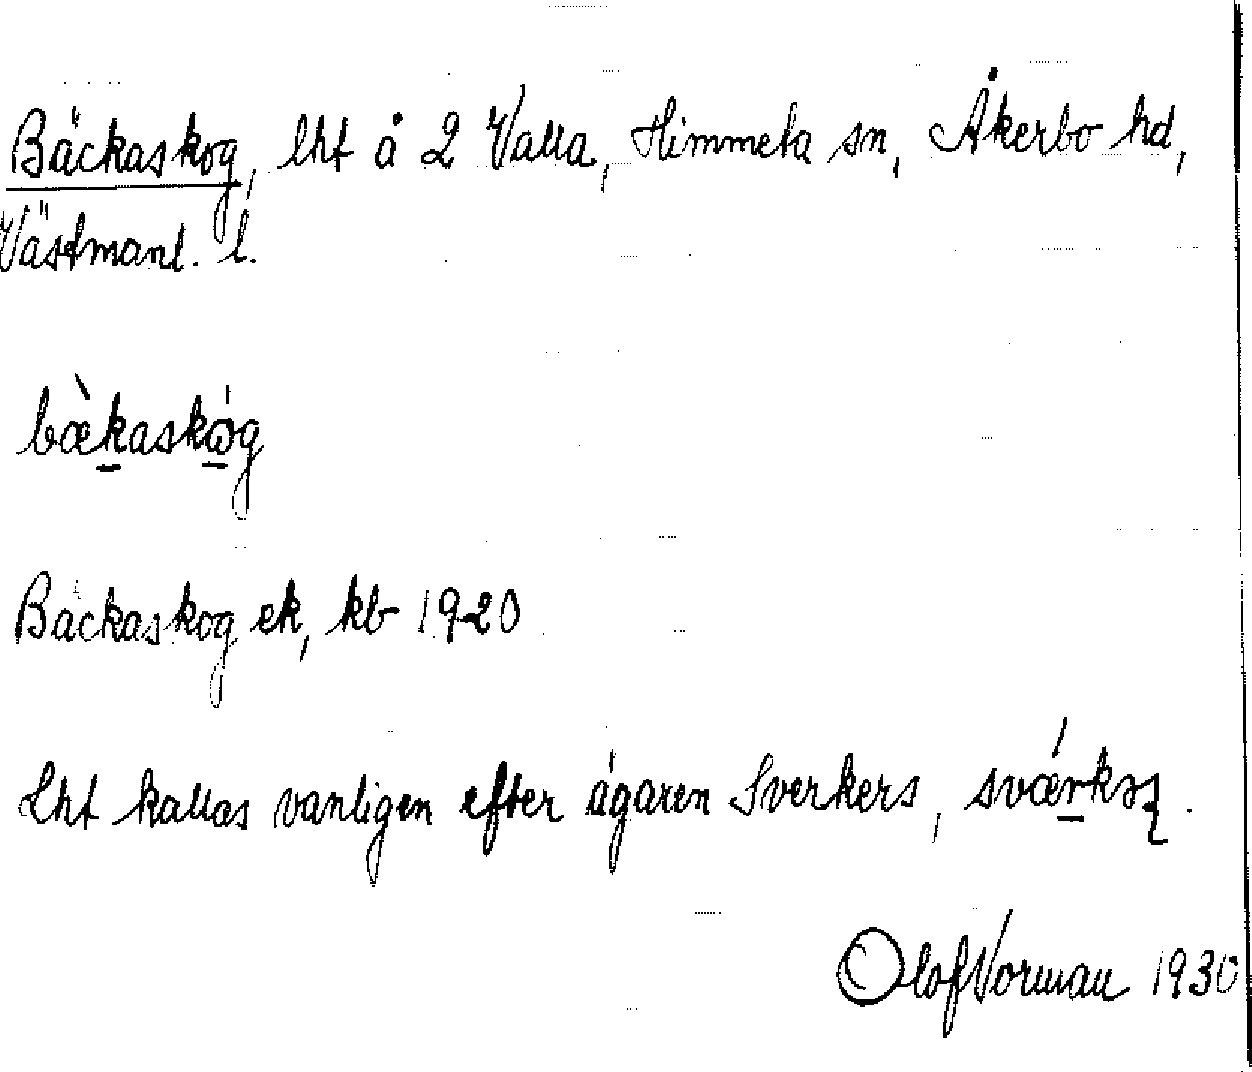 Bäckaskog, lht å 2 Valla, Himmeta sn, Åkerbo hd,
Västmanl. l.
bæ̀kaskóg
Bäckaskog ek, kb 1920
Lht kallas vanligen efter ägaren Sverkers,
Olof Norman 1930